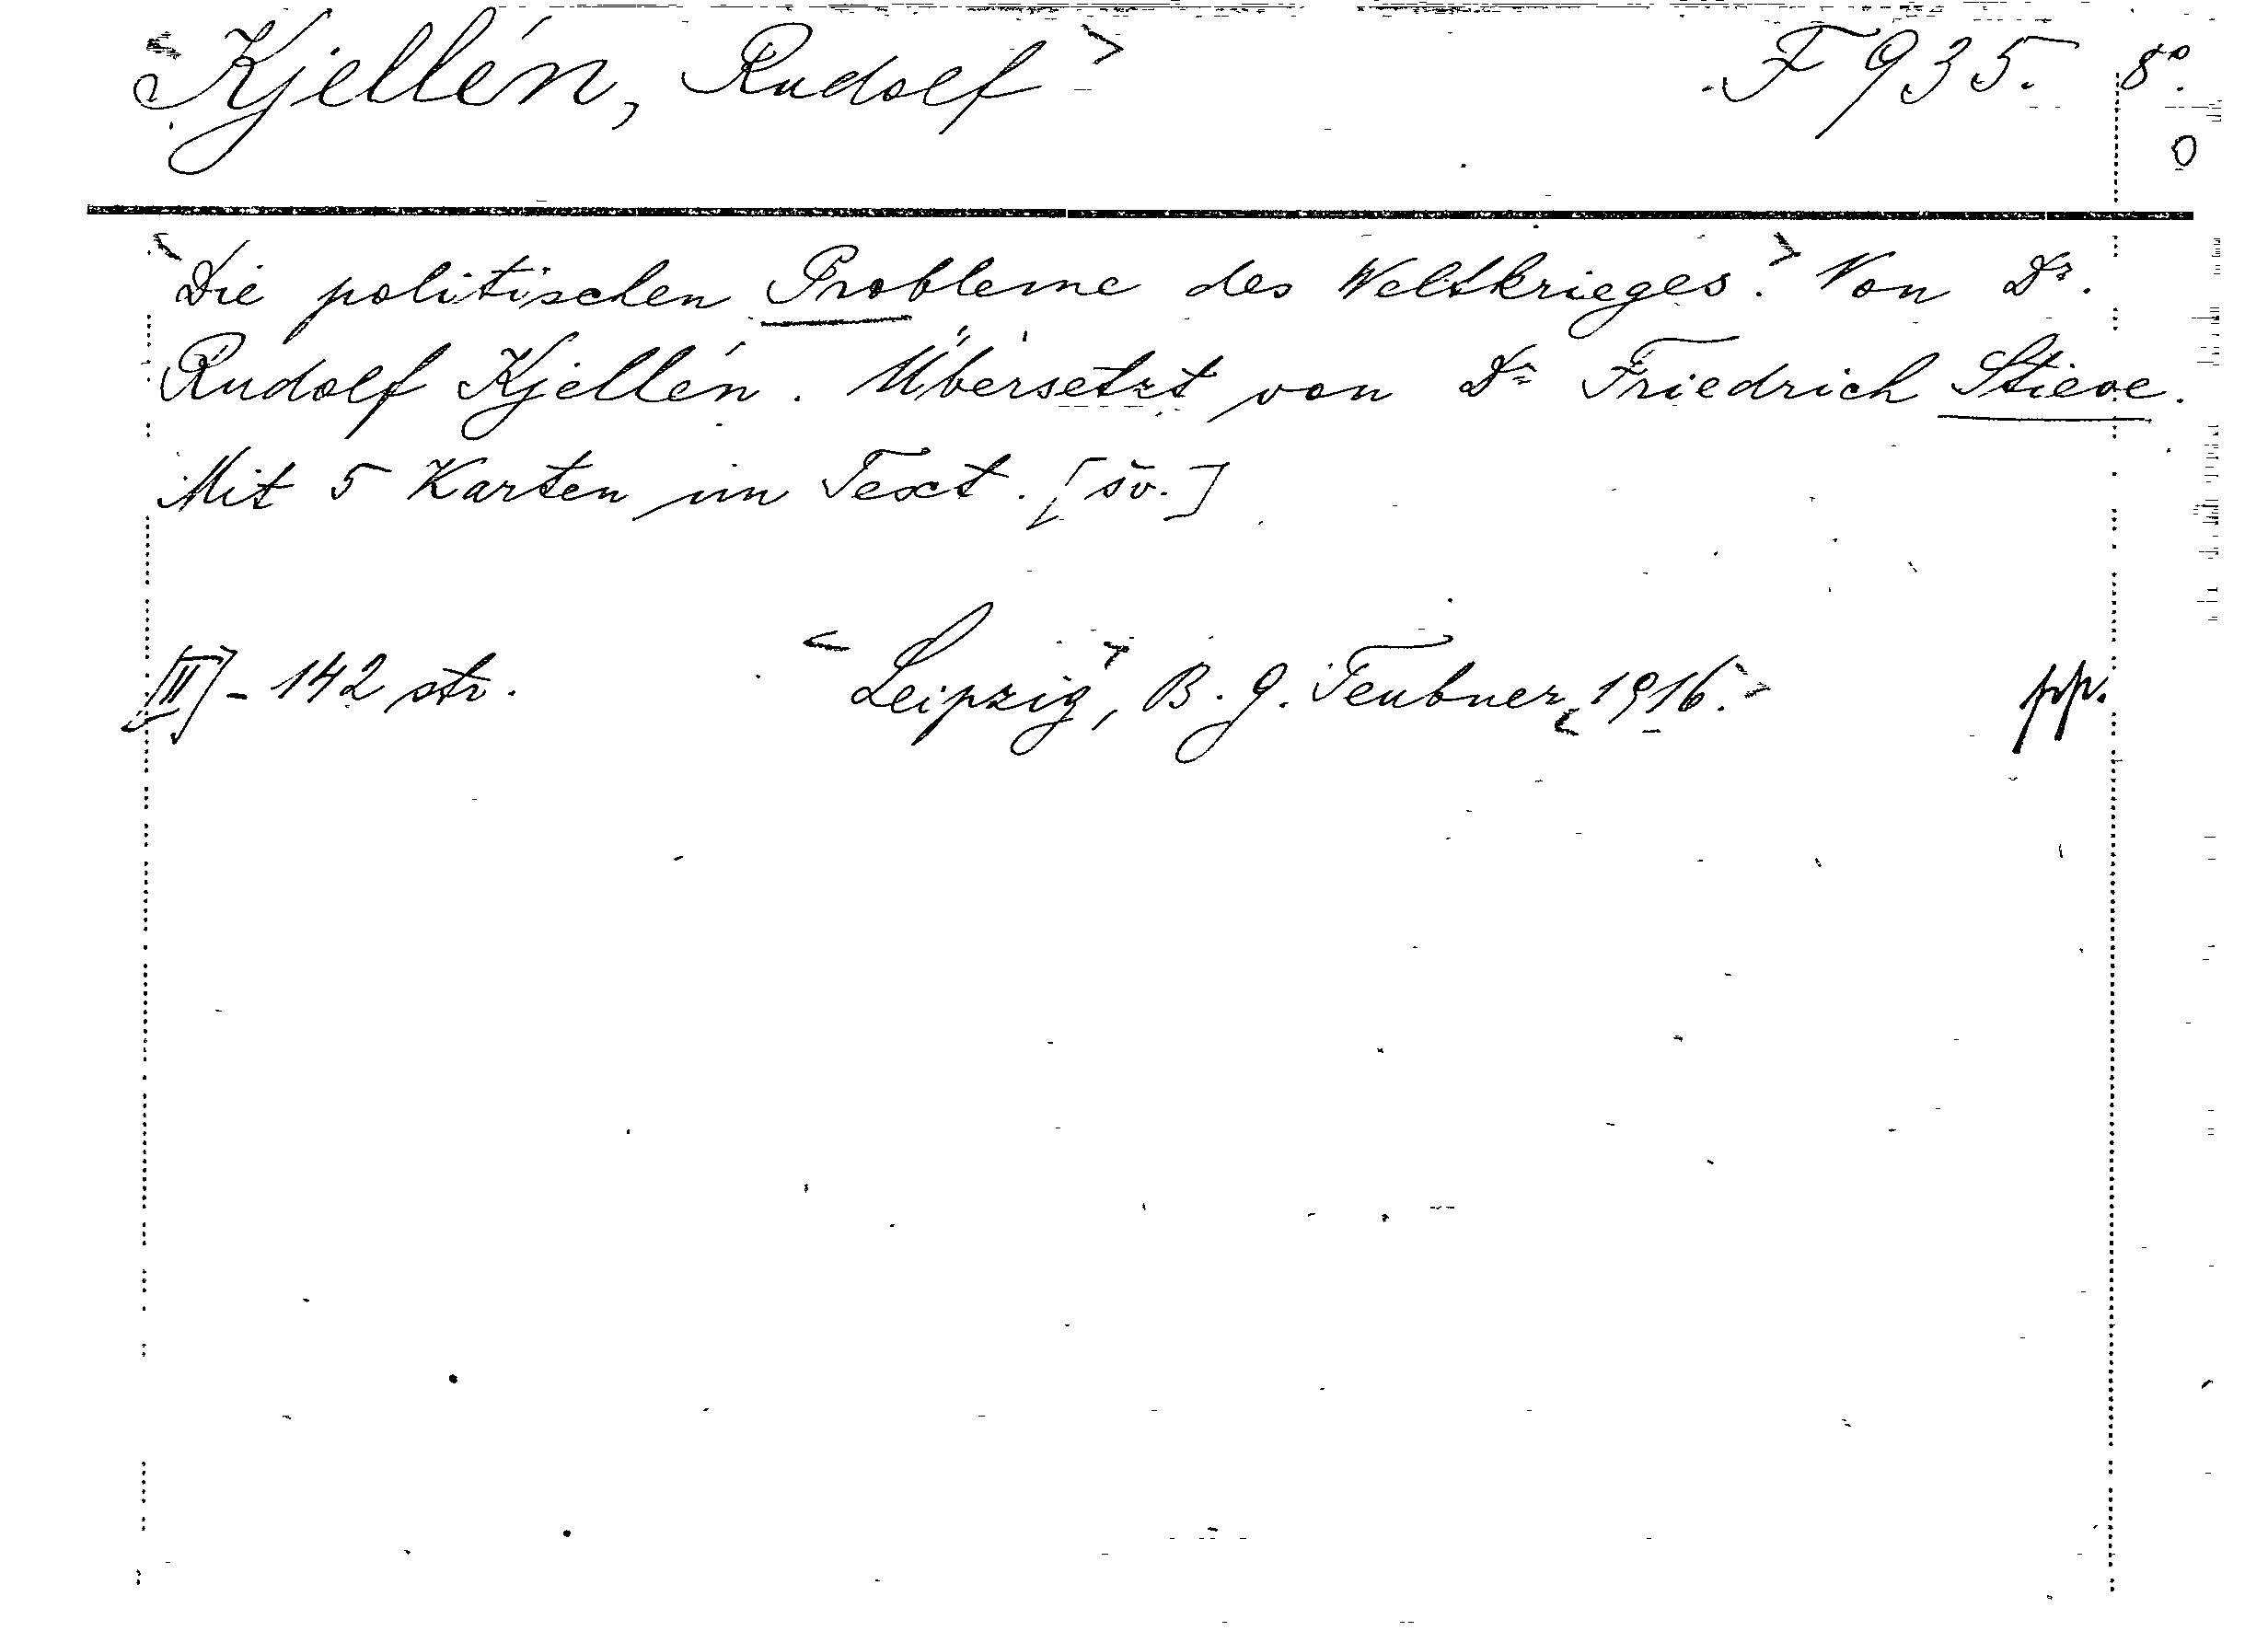 <Kjellén, Rudolf> F 935. 8°.
0
<Die politischen Probleme des Weltkrieges.> Von Dr.
Rudolf Kjellén. Übersetzt von Dr Friedrich Stieve.
Mit 5 Karten im Text. [šv.]
[II] - 142 str. <Leipzig>, B. G. Teubner, <1916.> pp.